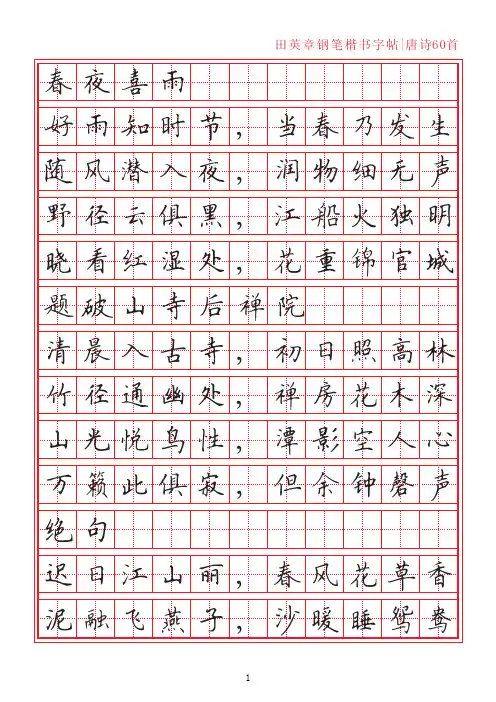 田英章钢笔楷书字帖|唐诗60首
春夜喜雨
好雨知时节，当春乃发生
随风潜入夜，润物细无声
野径云俱黑，江船火独明
晓看红湿处，花重锦官城
题破山寺后禅院
清晨入古寺，初日照高林
竹径通幽处，禅房花木深
山光悦鸟性，潭影空人心
万籁此俱寂，但余钟磬声
绝句
迟日江山丽，春风花草香
泥融飞燕子，沙暖睡鸳鸯
1